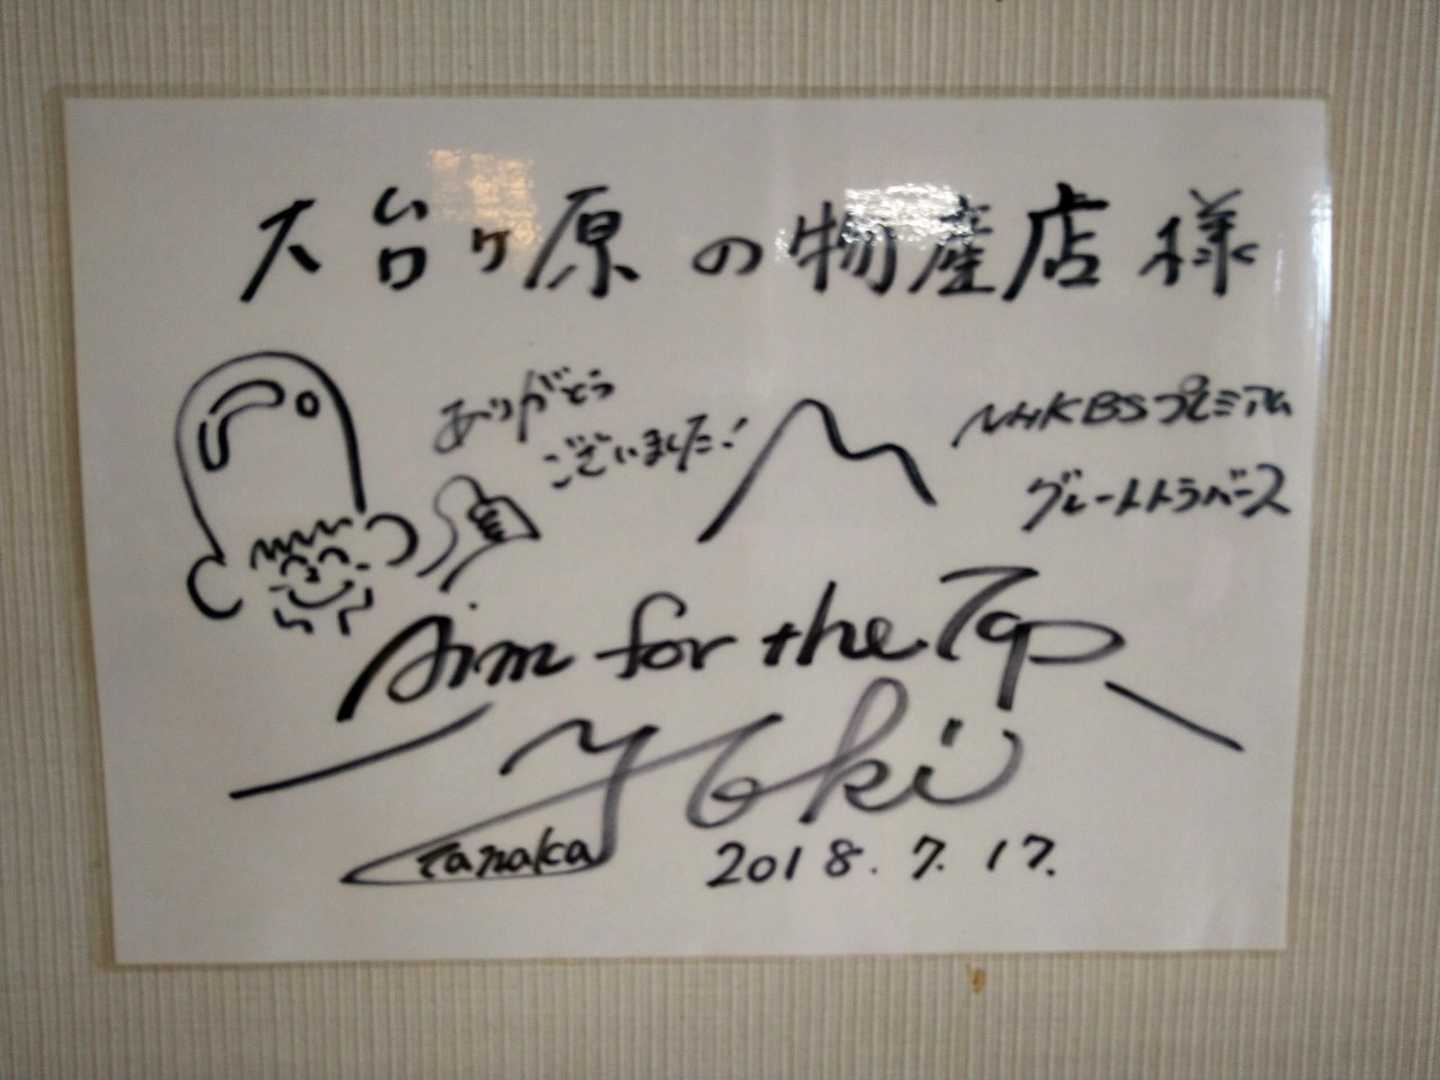 大台ヶ原の物産店様
ありがとう
ございました!
NHKBSプレミアム
グレートトラバース
Aim for the Top
Yoki
Tanaka
2018.7.17.